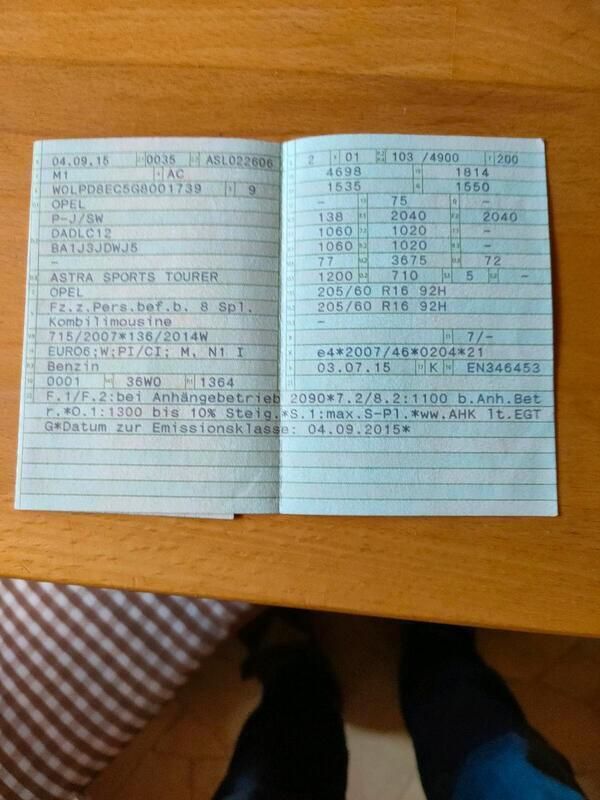 04.09.15 0035 ASL022606
M1 AC
W0LPD8EC5G8001739 9
OPEL
P-J/SW
DADLC12
BA1J3JDWJ5
–
ASTRA SPORTS TOURER
OPEL
Fz.z.Pers.bef.b. 8 Spl.
Kombilimousine
715/2007*136/2014W
EURO6;W;PI/CI; M, N1 I
Benzin
0001 36W0 1364
2 01 103 /4900 200
4698 1814
1535 1550
– 75 –
138 2040 2040
1060 1020 –
1060 1020 –
77 3675 72
1200 710 5 –
205/60 R16 92H
205/60 R16 92H
–
7/–
e4*2007/46*0204*21
03.07.15 K EN346453
F.1/F.2:bei Anhängebetrieb 2090*7.2/8.2:1100 b.Anh.Bet
r.*O.1:1300 bis 10% Steig.*S.1:max.S-Pl.*ww.AHK lt.EGT
G*Datum zur Emissionsklasse: 04.09.2015*